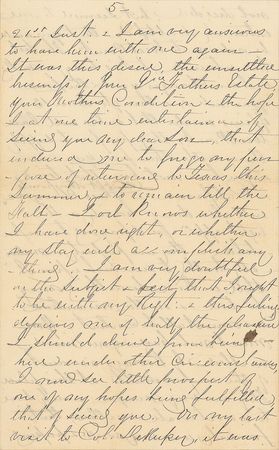 5-
21st Inst. & I am very anxious
to have him with me again -
It was this desire, the unsettled
business of your Gd Fathers Estate
your Mothers Condition & the hope
I at one time entertained of
seeing you my dear Son, that
induced me to forego my pur-
pose of returning to Texas this
Summer, & to remain till the
Fall - God knows whether
I have done right, or whether
my stay will accomplish any
thing. - I am very doubtful
on the subject & feel that I ought
to be with my Regt: & this feeling
deprives me of half the pleasure
I should derive from being
here under other circumstances,
I now see little prospect of
one of my hopes being fulfilled
that of seeing you. On my last
visit to Col: it was